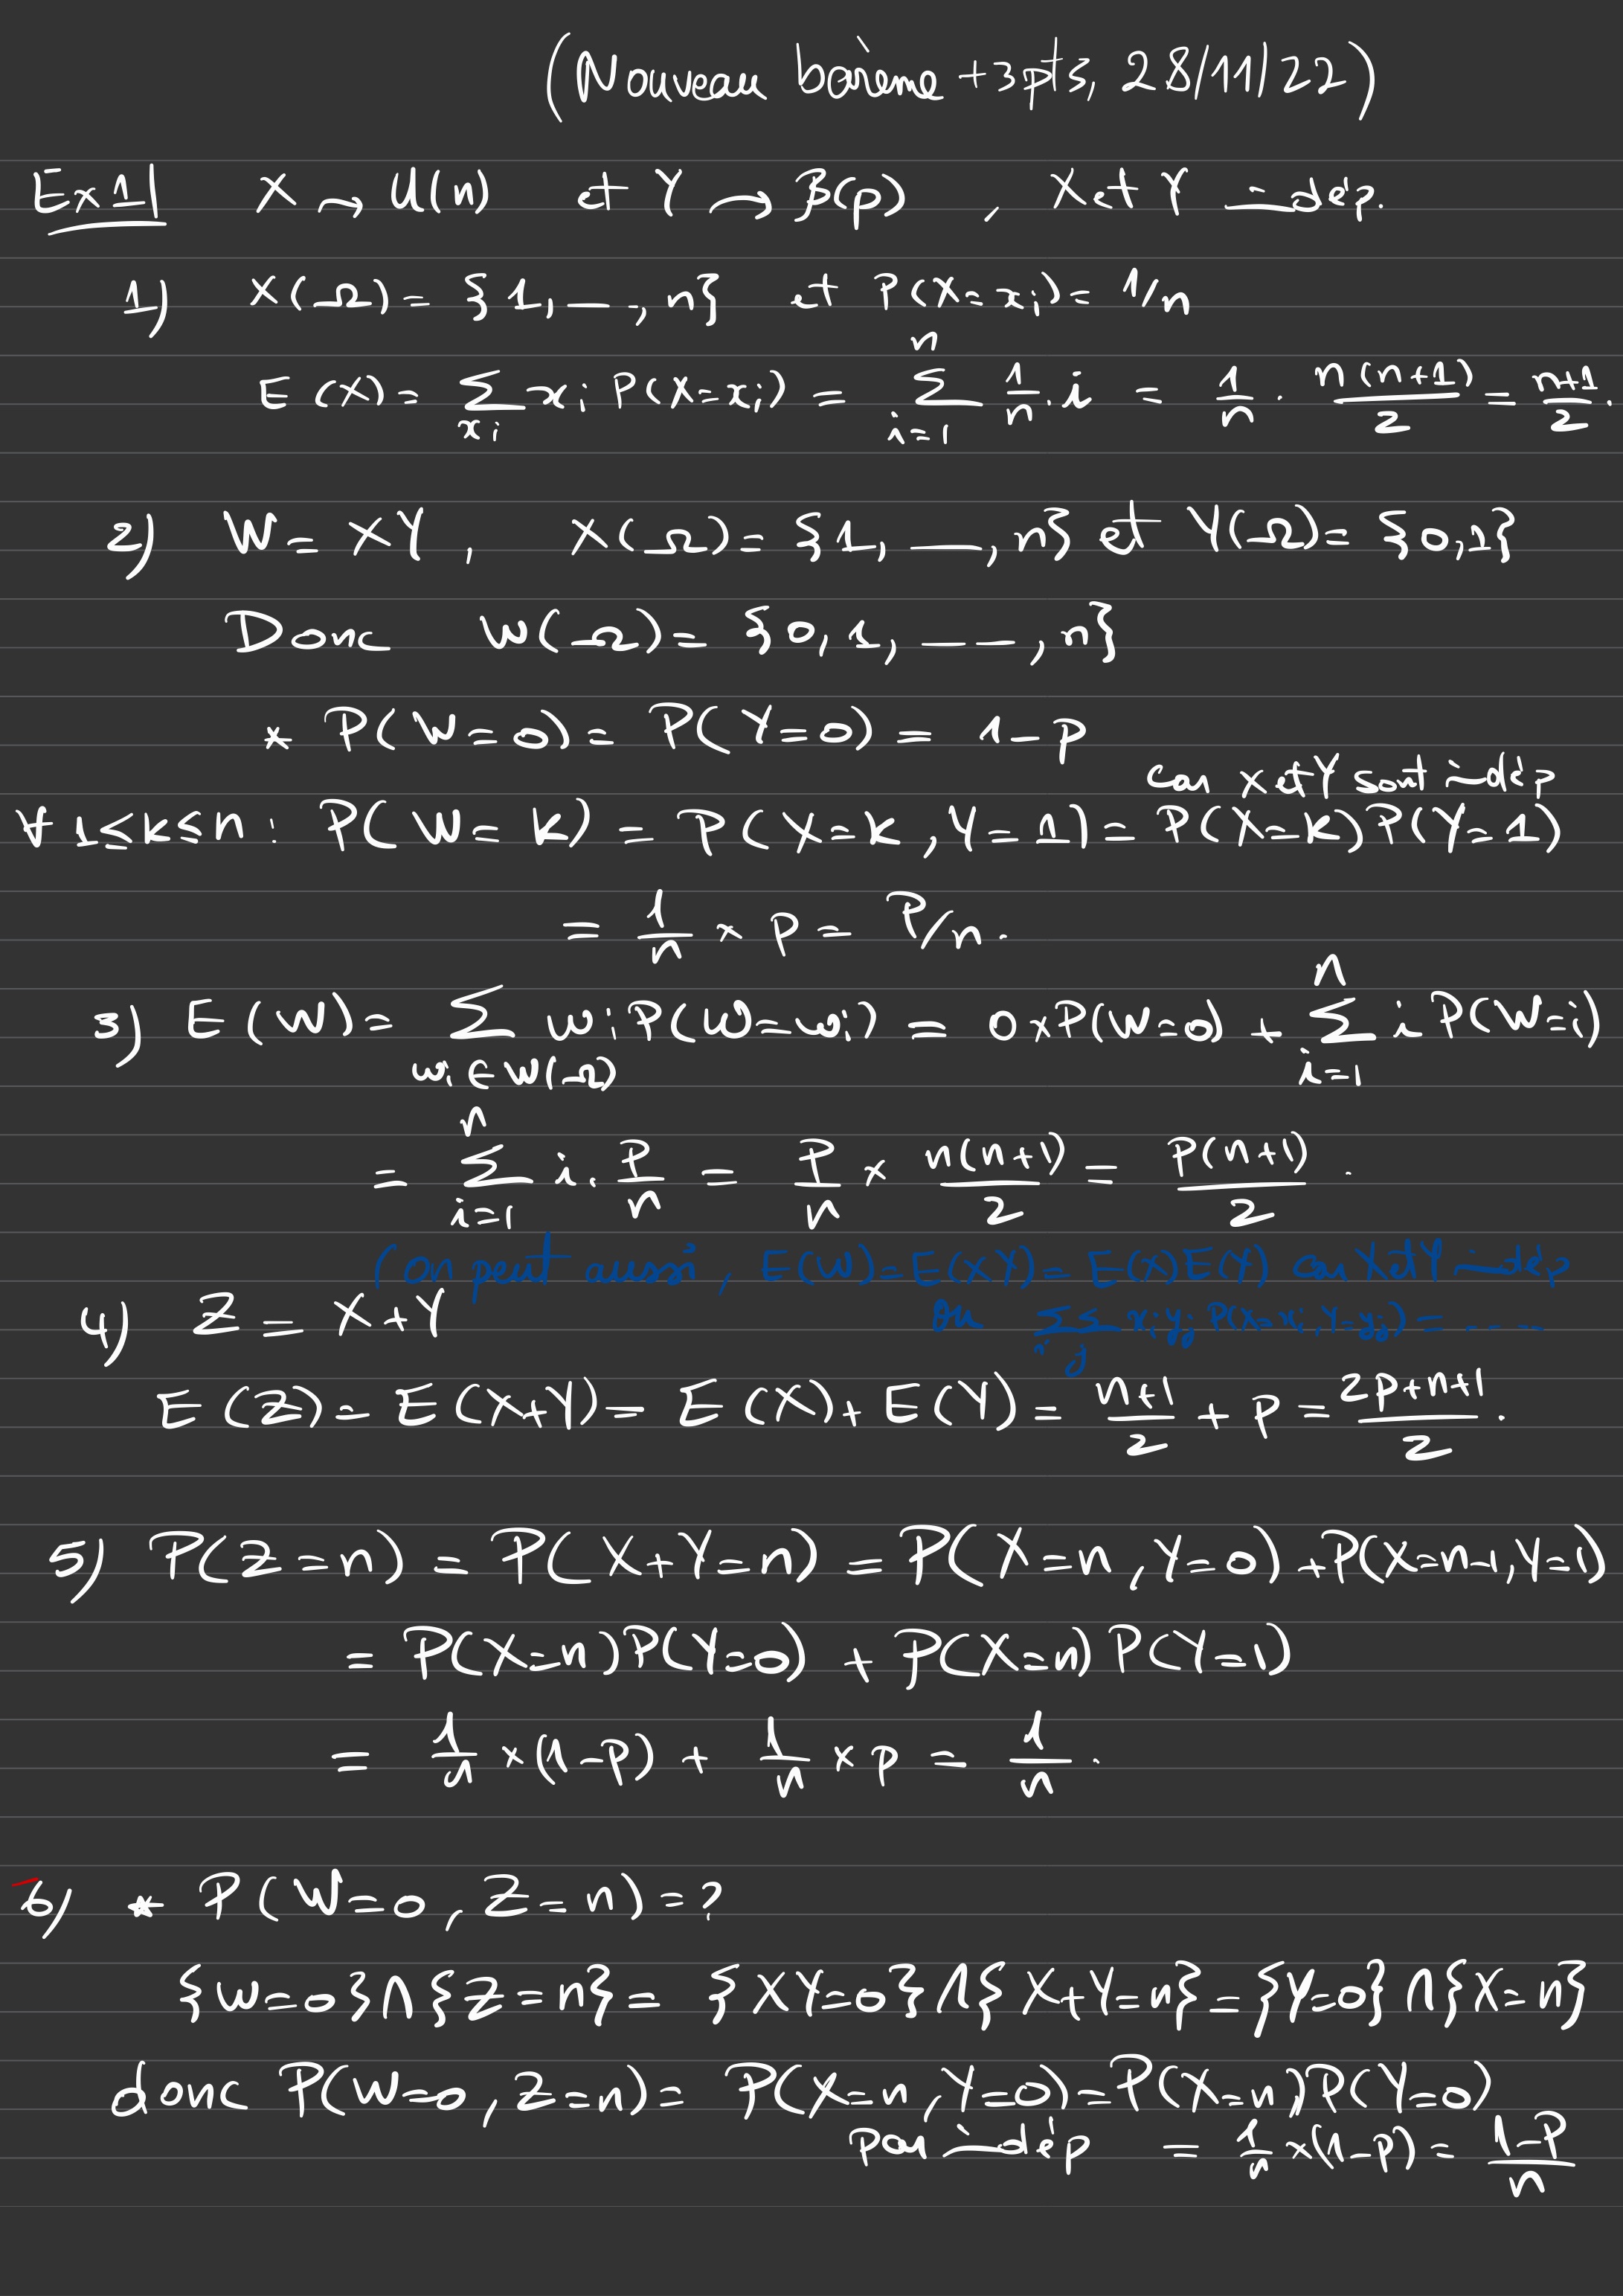 (Nouveau barème + 3 pts, 28/11/22)
Ex1| X → U(n) et Y → B(p) , X et Y indep.
1) X(Ω) = {1, —, n} et P(X=x_i) = 1/n
E(X) = ∑_{x_i} x_i P(X=x_i) = ∑_{i=1}^{n} 1/n . i = 1/n . n(n+1)/2 = n+1/2 .
2) W = XY , X(Ω) = {1, —, n} et Y(Ω) = {0,1}
Donc W(Ω) = {0, 1, — —, n}
* P(W=0) = P(Y=0) = 1-p
car X et Y sont indép
∀ 1≤k≤n : P(W=k) = P(X=k, Y=1) = P(X=k) P(Y=1)
= 1/n × p = P/n .
3) E(W) = ∑_{ω_i ∈ W(Ω)} ω_i P(W=ω_i) = 0×P(W=0) + ∑_{i=1}^{n} i P(W=i)
= ∑_{i=1}^{n} i . P/n = P/n × n(n+1)/2 = P(n+1)/2 .
(on peut aussi, E(W)=E(XY)=E(X)E(Y) car X et Y indép
4) Z = X+Y
ou ∑_i ∑_j x_i y_j P(X=x_i, Y=y_j) = - - -
E(Z) = E(X+Y) = E(X) + E(Y) = n+1/2 + P = 2P+n+1/2 .
5) P(Z=n) = P(X+Y=n) = P(X=n, Y=0) + P(X=n-1, Y=1)
= P(X=n) P(Y=0) + P(X=n) P(Y=1)
= 1/n × (1-P) + 1/n × p = 1/n .
6) * P(W=0, Z=n) = ?
{W=0} ∩ {Z=n} = {XY=0} ∩ {X+Y=n} = {Y=0} ∩ {X=n}
donc P(W=0, Z=n) = P(X=n, Y=0) = P(X=n) P(Y=0)
Par indép = 1/n × (1-p) = 1-P/n